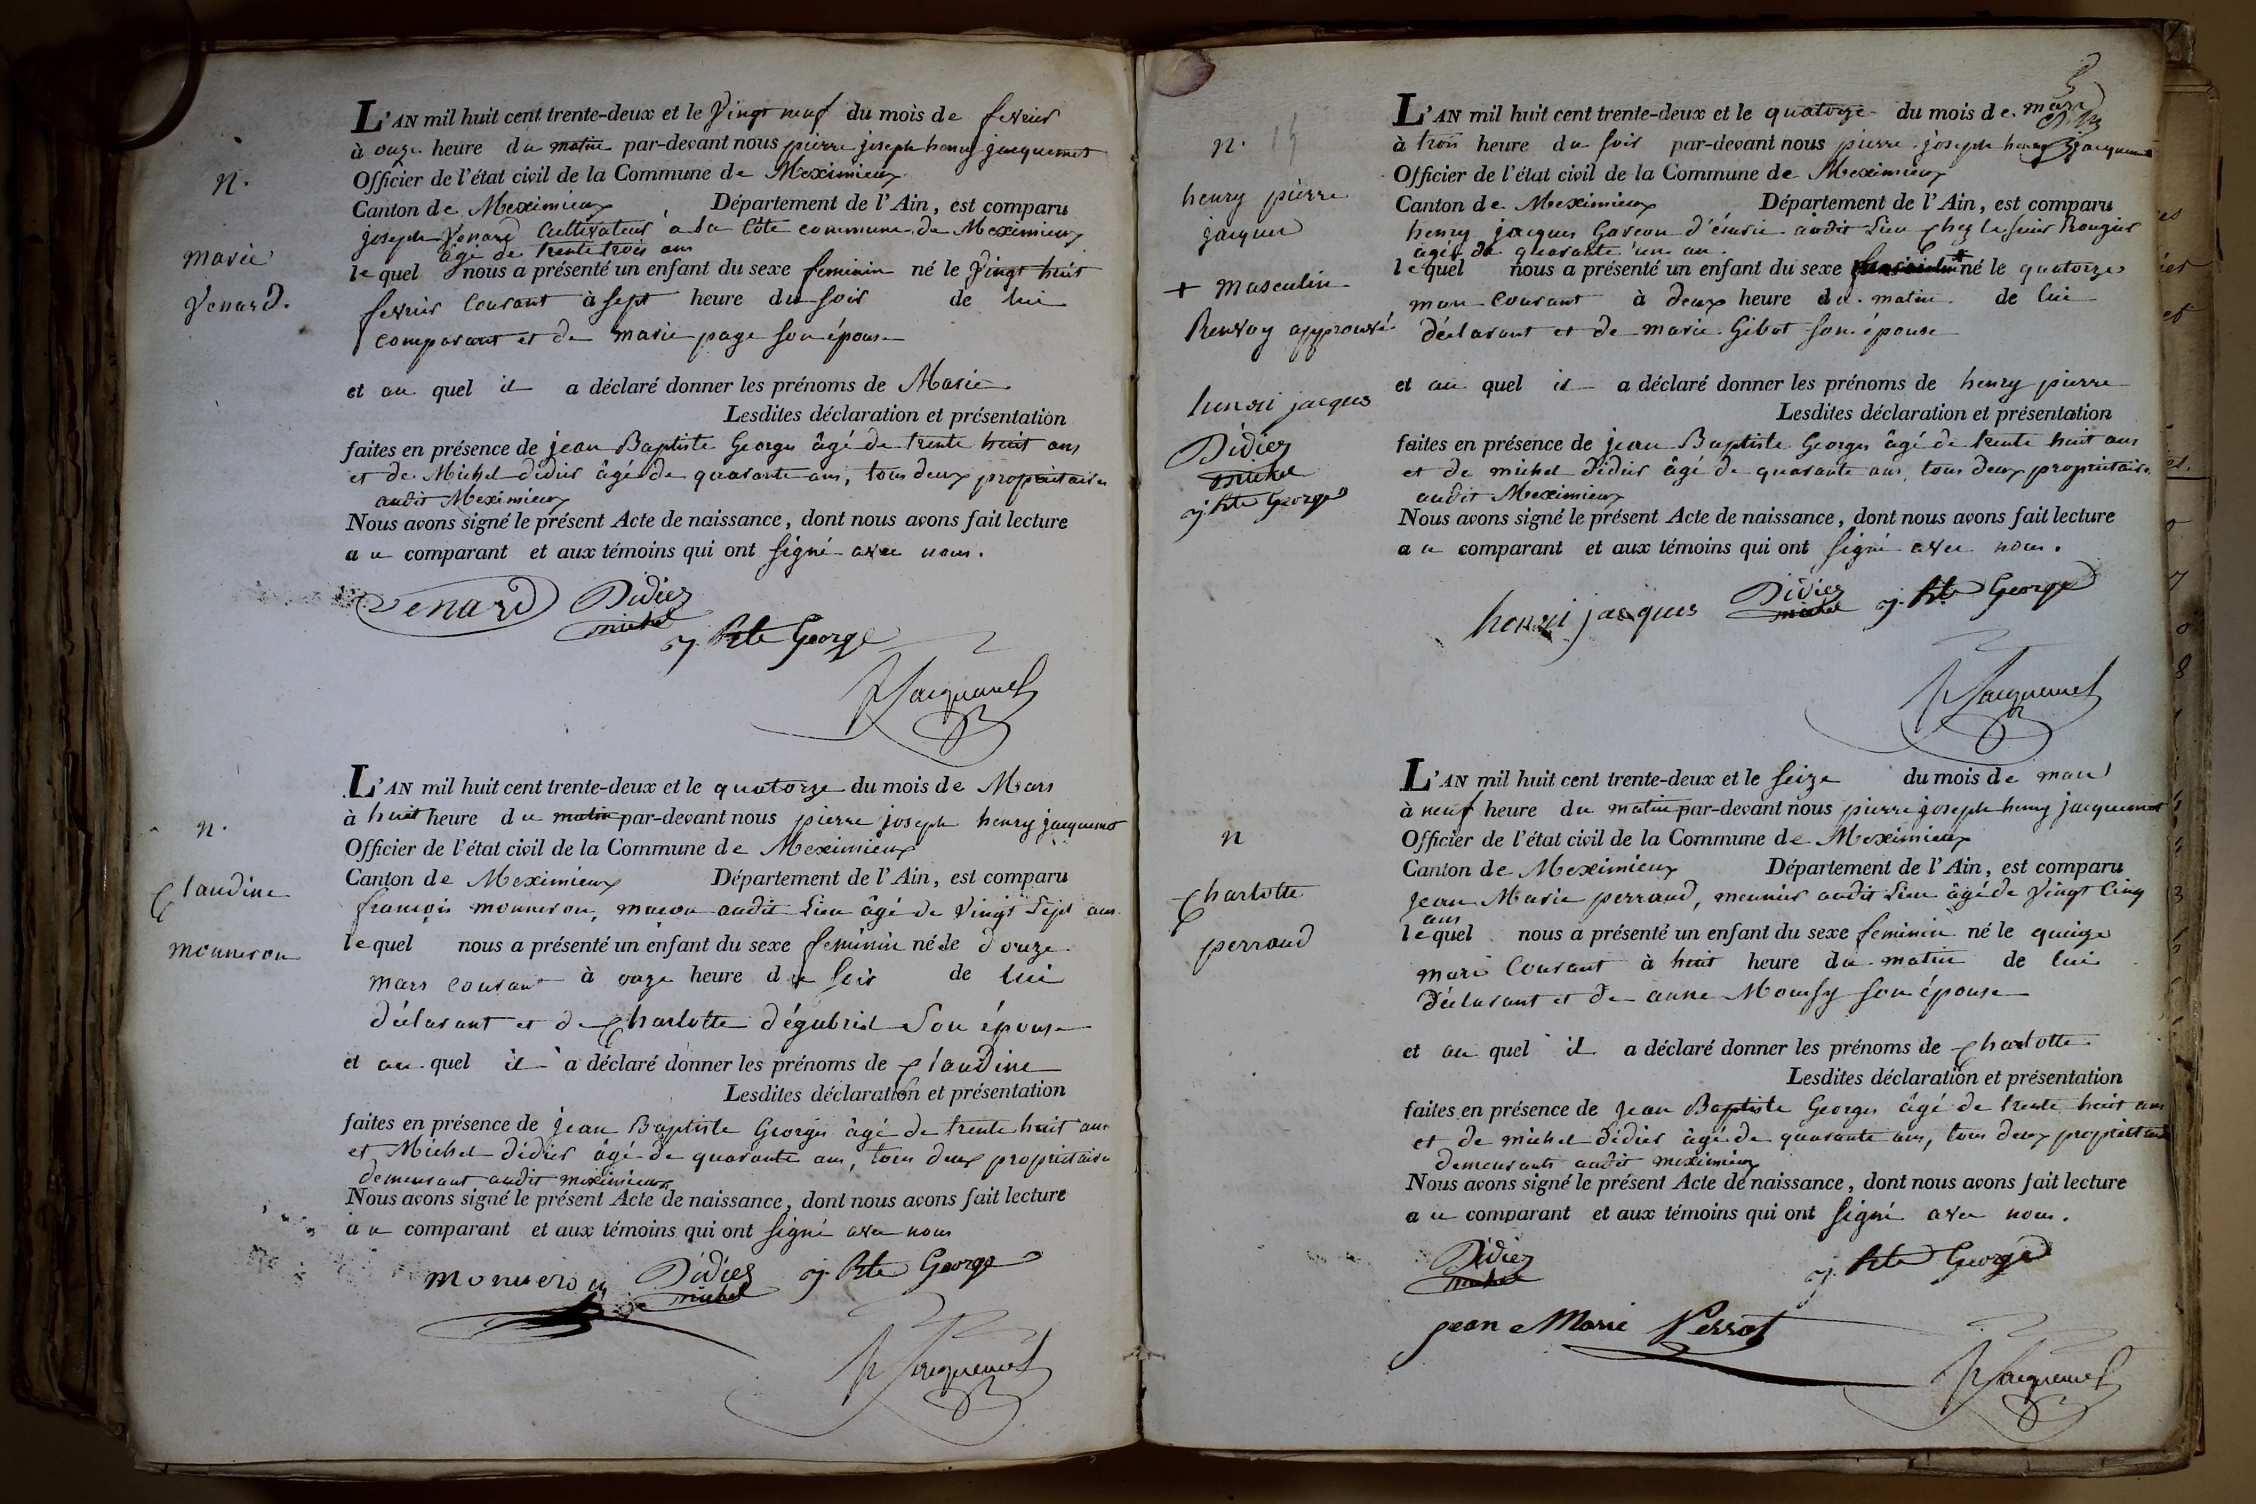 n.
marie
Venard.
L'AN mil huit cent trente-deux et le Vingt neuf du mois de fevrier
à onze heure du matin par-devant nous pierre joseph henry jacquemet
Officier de l'état civil de la Commune de Meximieux
Canton de Meximieux Département de l'Ain, est comparu
joseph Venard Cultivateur à la Côte commune de Meximieux
âgé de trente trois ans
lequel nous a présenté un enfant du sexe feminin né le Vingt huit
fevrier courant à sept heure du soir de lui
comparant et de marie page son épouse
et au quel il a déclaré donner les prénoms de Marie
Lesdites déclaration et présentation
faites en présence de jean Baptiste Georges âgé de trente huit ans
et de Michel didier âgé de quarante ans, tous deux propriétaires
audit Meximieux
Nous avons signé le présent Acte de naissance, dont nous avons fait lecture
au comparant et aux témoins qui ont signé avec nous.
Venard Didiez
michel
j. Bte George
Jacquemet
n.
Claudine
monneron
L'AN mil huit cent trente-deux et le quatorze du mois de Mars
à huit heure du matin par-devant nous pierre joseph henry jacquemet
Officier de l'état civil de la Commune de Meximieux
Canton de Meximieux Département de l'Ain, est comparu
françois monneron, maçon audit Lieu âgé de Vingt Sept ans
lequel nous a présenté un enfant du sexe feminin né le douze
mars courant à onze heure du soir de lui
déclarant et de Charlotte dégabriel Son épouse
et au quel il a déclaré donner les prénoms de Claudine
Lesdites déclaration et présentation
faites en présence de jean Baptiste Georges âgé de trente huit ans
et Michel didier âgé de quarante ans, tous deux propriétaires
demeurant audit meximieux
Nous avons signé le présent Acte de naissance, dont nous avons fait lecture
au comparant et aux témoins qui ont signé avec nous
monneron Didiez j. Bte George
michel
Jacquemet
n. 15
henry pierre
jacques
+ masculin
Renvoy approuvé
henri jacques
Didiez
michel
j. Bte George
L'AN mil huit cent trente-deux et le quatorze du mois de mars
à trois heure du soir par-devant nous pierre joseph henry jacquemet
Officier de l'état civil de la Commune de Meximieux
Canton de Meximieux Département de l'Ain, est comparu
henry jacques Garcon d'écurie audit Lieu chez le sieur
âgé de quarante un an
lequel nous a présenté un enfant du sexe + né le quatorze
mars courant à deux heure du matin de lui
déclarant et de marie Gibot son épouse
et au quel il a déclaré donner les prénoms de henry pierre
Lesdites déclaration et présentation
faites en présence de jean Baptiste Georges âgé de trente huit ans
et de michel didier âgé de quarante ans, tous deux propriétaires
audit Meximieux
Nous avons signé le présent Acte de naissance, dont nous avons fait lecture
au comparant et aux témoins qui ont signé avec nous.
henri jacques Didiez j. Bte George
michel
Jacquemet
n
Charlotte
perraud
L'AN mil huit cent trente-deux et le seize du mois de mars
à neuf heure du matin par-devant nous pierre joseph henry jacquemet
Officier de l'état civil de la Commune de Meximieux
Canton de Meximieux Département de l'Ain, est comparu
jean Marie perraud, meunier audit Lieu âgé de Vingt Cinq
ans
lequel nous a présenté un enfant du sexe feminin né le quinze
mars Courant à huit heure du matin de lui
déclarant et de anne Moussy son épouse
et au quel il a déclaré donner les prénoms de Charlotte
Lesdites déclaration et présentation
faites en présence de jean Baptiste Georges âgé de trente huit ans
et de michel didier âgé de quarante ans, tous deux propriétaires
demeurants audit meximieux
Nous avons signé le présent Acte de naissance, dont nous avons fait lecture
au comparant et aux témoins qui ont signé avec nous.
Didiez j. Bte George
michel
jean Marie Perrot
Jacquemet